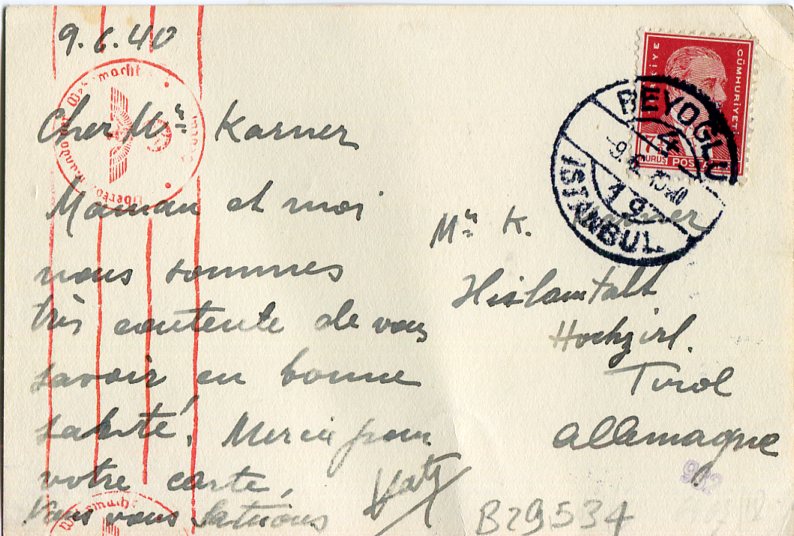 9.6.40
Cher Mr Karner
Maman et moi
nous sommes
très contente de vous
savoir en bonne
santé. Merci pour
votre carte,
Nous vous saluons
Mr K.
Hochzirl.
Tirol
Allemagne
B29534
BEYOĞLU
4
-9.6.1940
19
ISTANBUL
CÜMHURİYETİ
POSTA
Wehrmacht